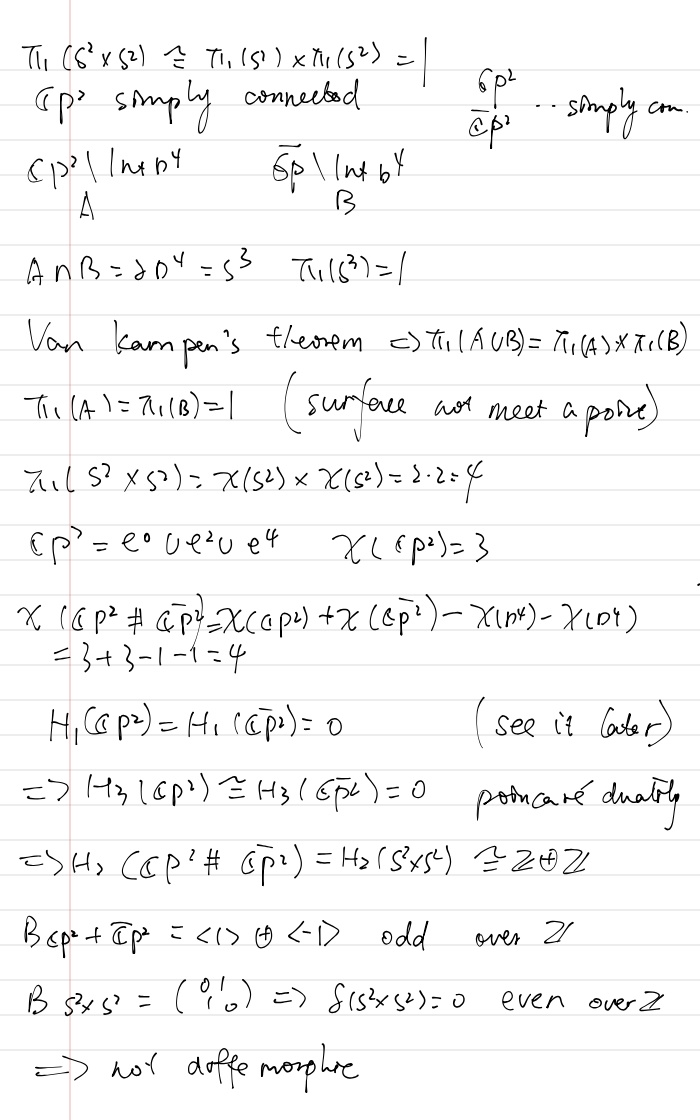 π₁(S² x S²) ≅ π₁(S²) x π₁(S²) = 1
ℂP² simply connected
ℂP²
ℂP̄² .. simply con.
ℂP² \ Int D⁴   ℂP̄ \ Int D⁴
A   B
A ∩ B = ∂D⁴ = S³   π₁(S³) = 1
Van Kampen's theorem => π₁(A∪B) = π₁(A) * π₁(B)
π₁(A) = π₁(B) = 1   (surface not meet a point)
π₁(S² x S²) = χ(S²) x χ(S²) = 2·2 = 4
ℂP² = e⁰ ∪ e² ∪ e⁴   χ(ℂP²) = 3
χ(ℂP² # ℂP̄²) = χ(ℂP²) + χ(ℂP̄²) - χ(D⁴) - χ(D⁴)
= 3+3-1-1 = 4
H₁(ℂP²) = H₁(ℂP̄²) = 0   (see it later)
=> H₃(ℂP²) ≅ H₃(ℂP̄²) = 0   poincaré duality
=> H₂(ℂP² # ℂP̄²) = H₂(S²×S²) ≅ ℤ⊕ℤ
B ℂP² + ℂP̄² = <1> ⊕ <-1> odd over ℤ
B S²×S² = (0 1 1 0) => δ(S²×S²) = 0 even over ℤ
=> not diffemorphic